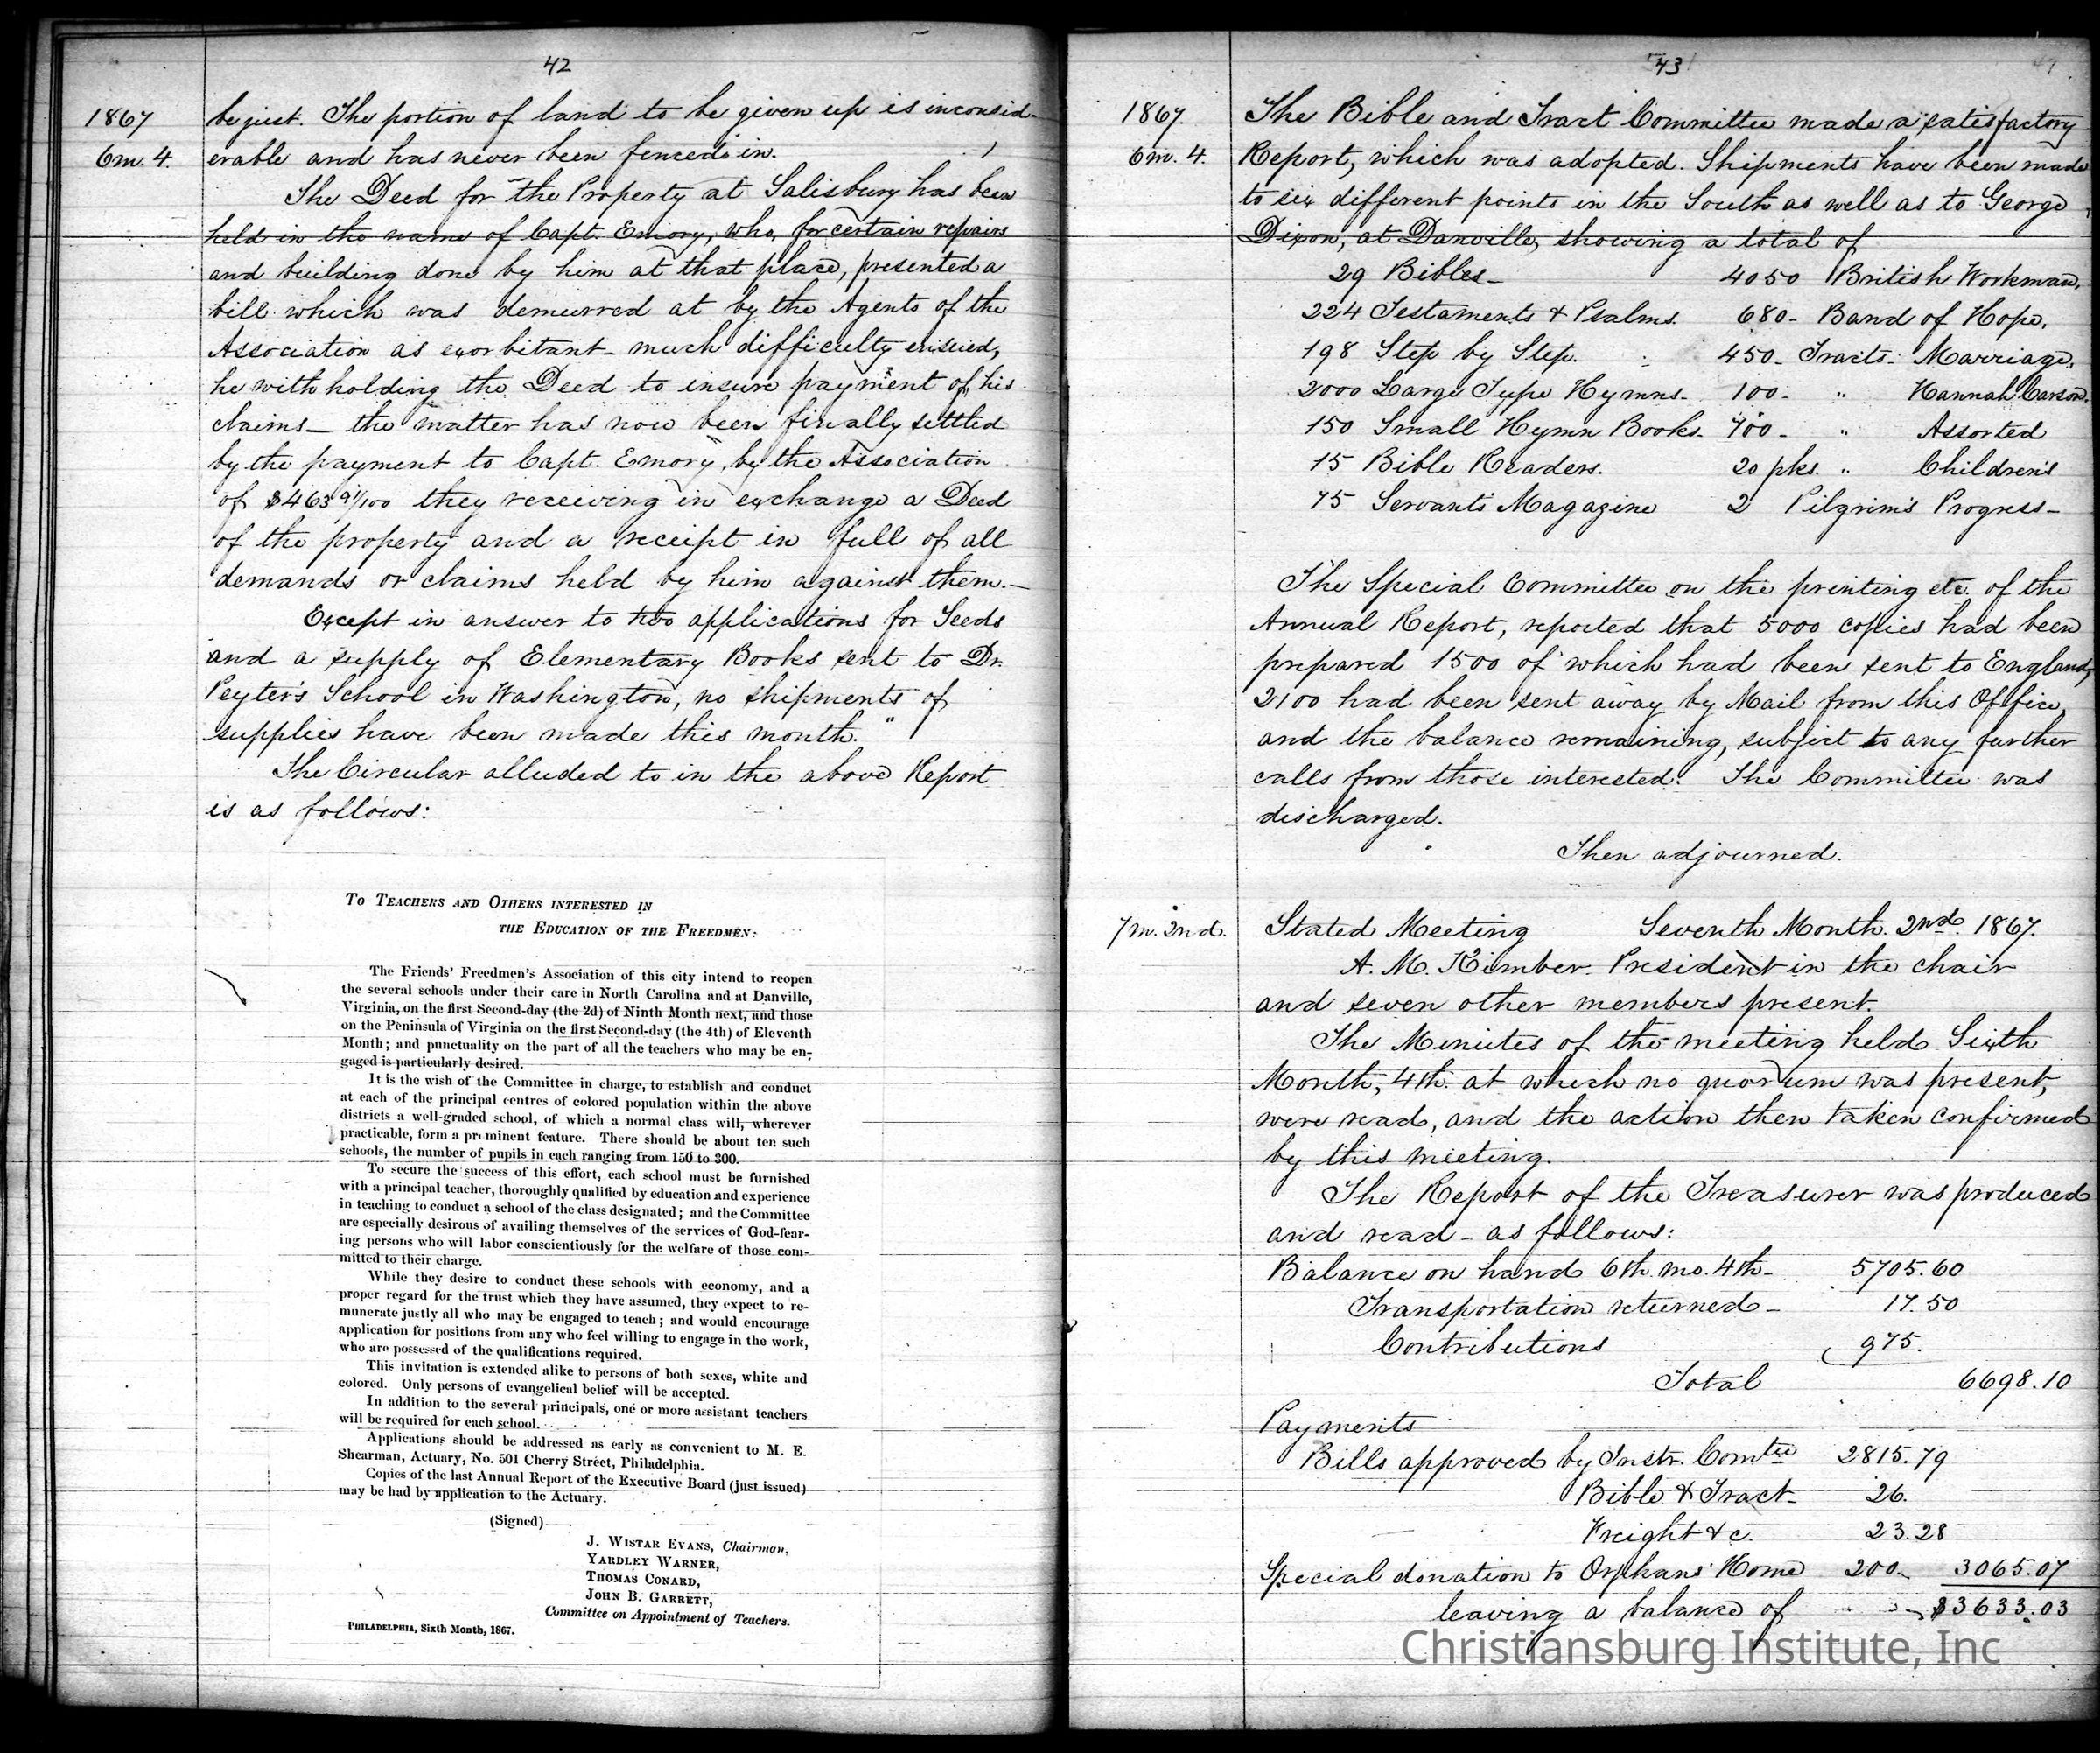 42
1867
6m. 4.
be just. The portion of land to be given up is inconsid-
erable and has never been fenced in.
The Deed for the Property at Salisbury has been
held in the name of Capt. Emory, who, for certain repairs
and building done by him at that place, presented a
bill which was demurred at by the Agents of the
Association as exorbitant - much difficulty ensued,
he withholding the Deed to insure payment of his
claims - the matter has now been finally settled
by the payment to Capt. Emory, by the Association
of $463 91/100 they receiving in exchange a Deed
of the property and a receipt in full of all
demands or claims held by him against them. -
Except in answer to two applications for Seeds
and a supply of Elementary Books sent to Dr.
Peyter's School in Washington, no shipments of
supplies have been made this month."
The Circular alluded to in the above Report
is as follows:
To Teachers and Others interested in
the Education of the Freedmen:
The Friends' Freedmen's Association of this city intend to reopen
the several schools under their care in North Carolina and at Danville,
Virginia, on the first Second-day (the 2d) of Ninth Month next, and those
on the Peninsula of Virginia on the first Second-day (the 4th) of Eleventh
Month; and punctuality on the part of all the teachers who may be en-
gaged is particularly desired.
It is the wish of the Committee in charge, to establish and conduct
at each of the principal centres of colored population within the above
districts a well-graded school, of which a normal class will, wherever
practicable, form a prominent feature. There should be about ten such
schools, the number of pupils in each ranging from 150 to 300.
To secure the success of this effort, each school must be furnished
with a principal teacher, thoroughly qualified by education and experience
in teaching to conduct a school of the class designated; and the Committee
are especially desirous of availing themselves of the services of God-fear-
ing persons who will labor conscientiously for the welfare of those com-
mitted to their charge.
While they desire to conduct these schools with economy, and a
proper regard for the trust which they have assumed, they expect to re-
munerate justly all who may be engaged to teach; and would encourage
application for positions from any who feel willing to engage in the work,
who are possessed of the qualifications required.
This invitation is extended alike to persons of both sexes, white and
colored. Only persons of evangelical belief will be accepted.
In addition to the several principals, one or more assistant teachers
will be required for each school.
Applications should be addressed as early as convenient to M. E.
Shearman, Actuary, No. 501 Cherry Street, Philadelphia.
Copies of the last Annual Report of the Executive Board (just issued)
may be had by application to the Actuary.
(Signed)
J. Wistar Evans, Chairman,
Yardley Warner,
Thomas Conard,
John B. Garrett,
Committee on Appointment of Teachers.
Philadelphia, Sixth Month, 1867.
43
1867.
6m. 4.
The Bible and Tract Committee made a satisfactory
Report, which was adopted. Shipments have been made
to six different points in the South as well as to George
Dixon, at Danville, showing a total of
29 Bibles - 4050 British Workman,
224 Testaments & Psalms. 680 - Band of Hope,
198 Step by Step. 450 - Tracts - Marriage,
2000 Large Type Hymns - 100 - " Hannah Carson,
150 Small Hymn Books - 700 - " Assorted
15 Bible Readers. 20 pks. " Children's
75 Servants Magazine 2 Pilgrim's Progress -
The Special Committee on the printing etc. of the
Annual Report, reported that 5000 copies had been
prepared 1500 of which had been sent to England,
2100 had been sent away by Mail from this Office,
and the balance remaining, subject to any further
calls from those interested. The Committee was
discharged.
Then adjourned.
7m. 2nd. Stated Meeting Seventh Month. 2nd. 1867.
A. M. Kimber. President in the chair
and seven other members present.
The Minutes of the meeting held Sixth
Month, 4th. at which no quorum was present,
were read, and the action then taken confirmed
by this meeting.
The Report of the Treasurer was produced
and read - as follows:
Balance on hand 6th mo. 4th - 5705.60
Transportation returned - 17.50
Contributions 975.
Total 6698.10
Payments
Bills approved by Instr. Comtee 2815.79
Bible & Tract - 26.
Freight &c. 23.28
Special donation to Orphans' Home 200. - 3065.07
leaving a balance of $3633.03
Christiansburg Institute, Inc